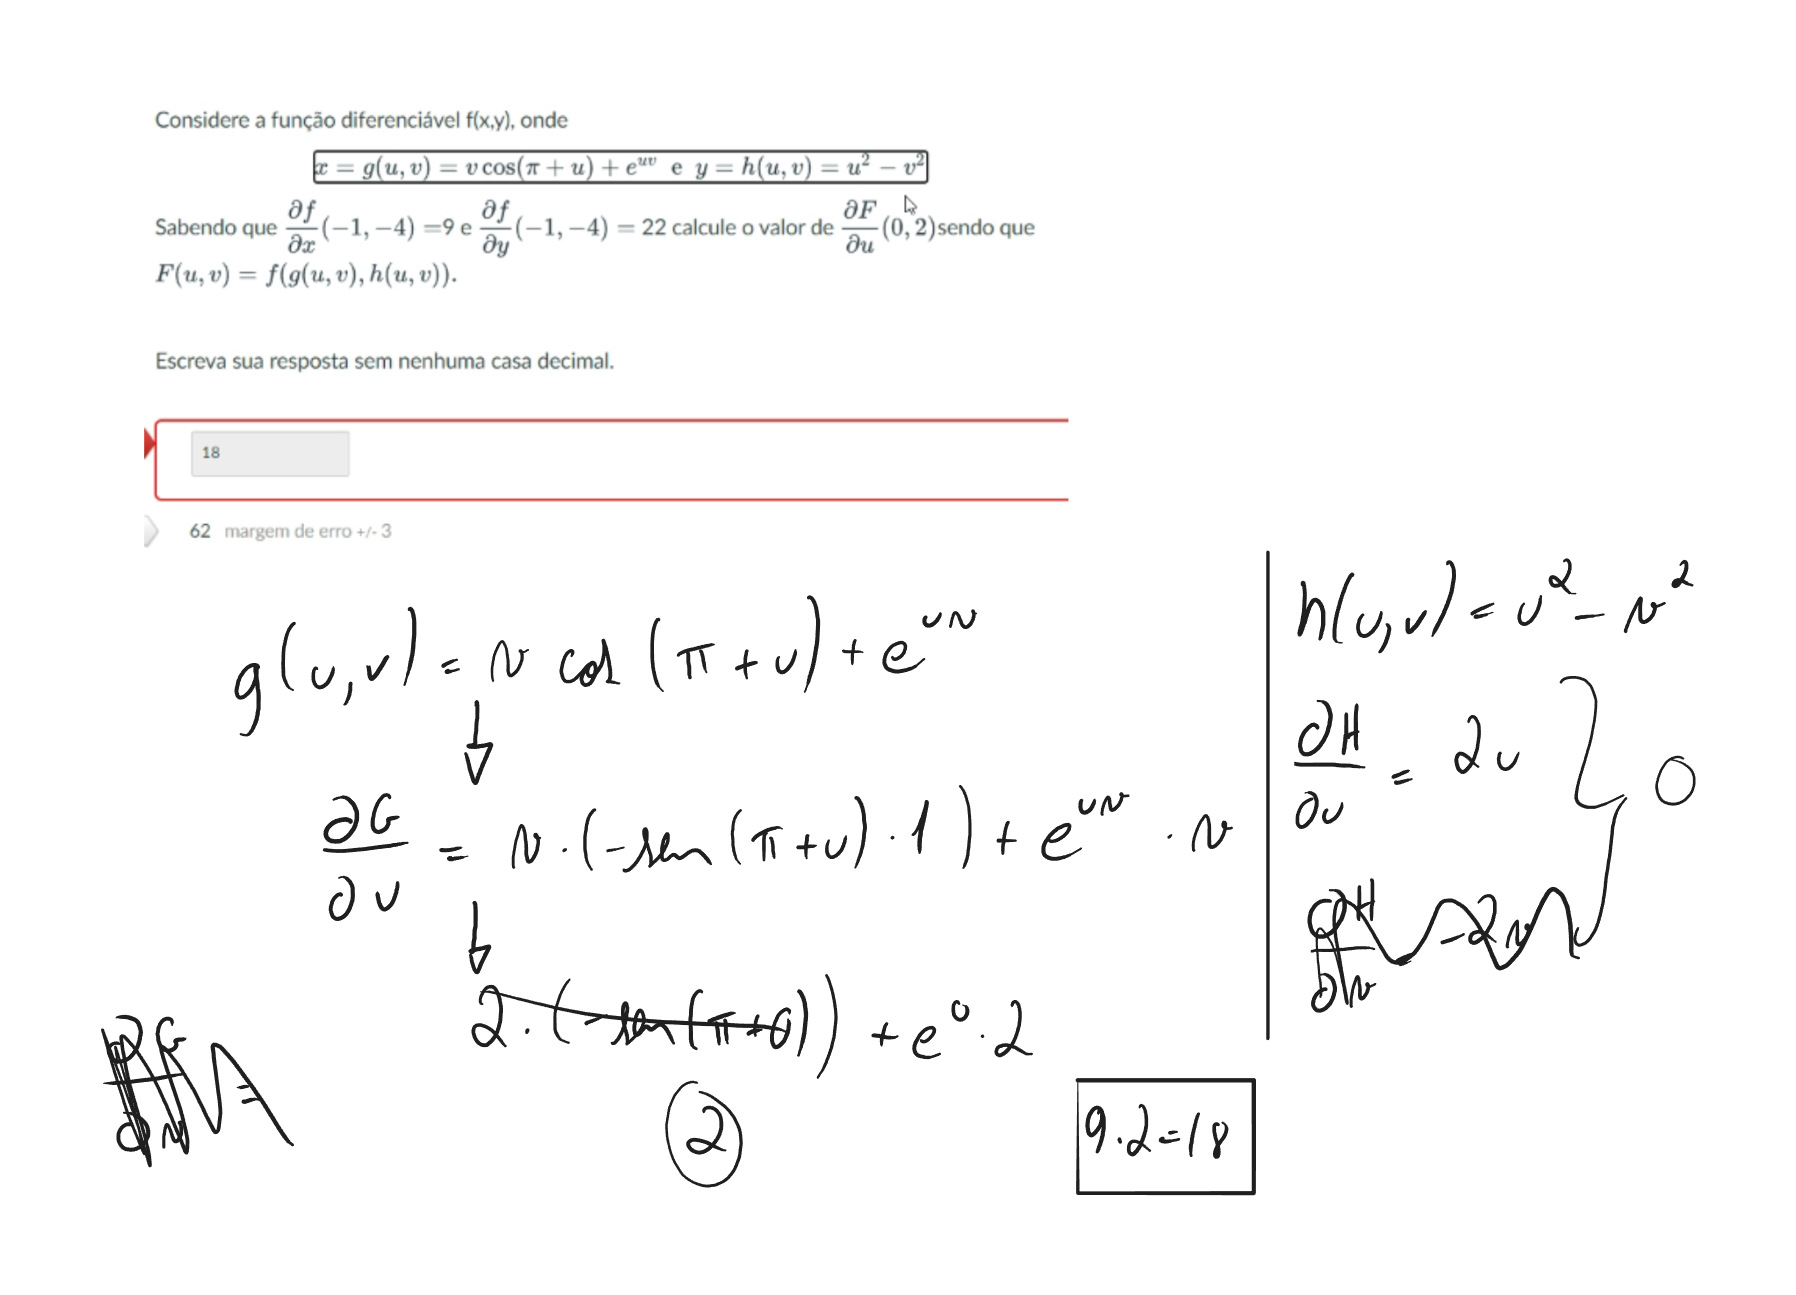 Considere a função diferenciável f(x,y), onde
x = g(u, v) = v cos(π + u) + e^{uv} e y = h(u, v) = u² − v²
Sabendo que ∂f/∂x (−1, −4) =9 e ∂f/∂y (−1, −4) = 22 calcule o valor de ∂F/∂u (0, 2)sendo que
F(u, v) = f(g(u, v), h(u, v)).
Escreva sua resposta sem nenhuma casa decimal.
18
62 margem de erro +/- 3
g(u,v) = v cos (π + u) + e^{uv}
∂G/∂u = v · (-sen (π + u) · 1) + e^{uv} · v
2 · (-sen (π + 0)) + e⁰ · 2
2
9.2=18
h(u,v) = u² − v²
∂H/∂u = 2u
0
∂H/∂v -2v
∂G/∂v =